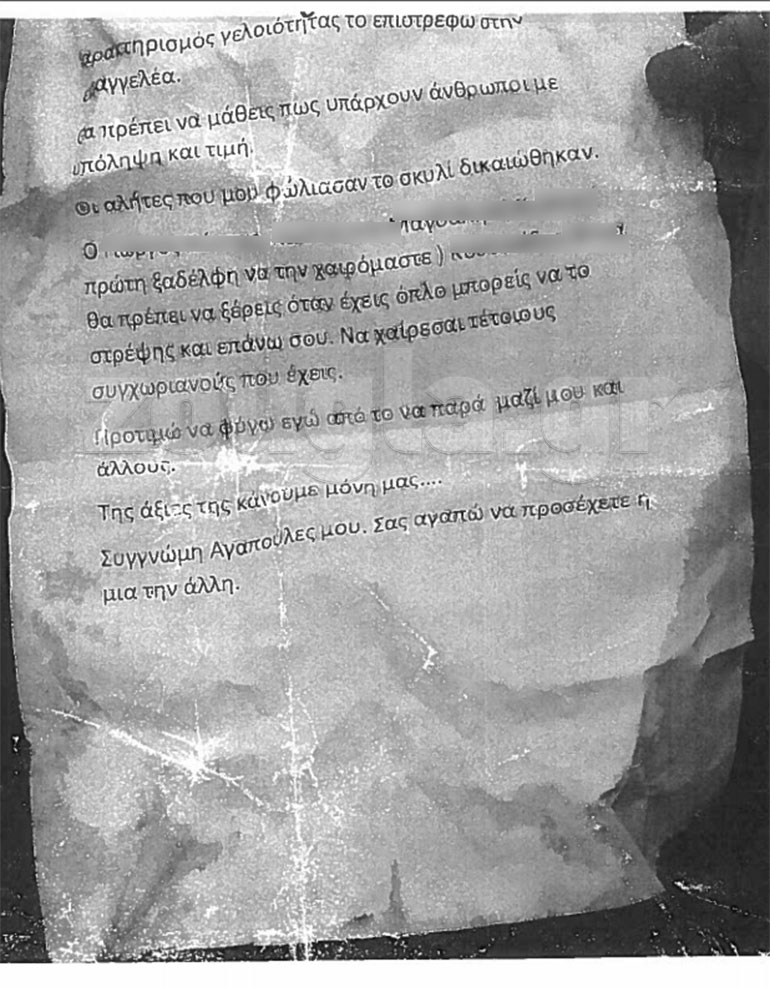 αρακτηρισμός γελοιότητας το επιστρέφω στην
αγγελέα.
α πρέπει να μάθεις πως υπάρχουν άνθρωποι με
υπόληψη και τιμή.
Οι αλήτες που μου φώλιασαν το σκυλί δικαιώθηκαν.
Ο
πρώτη ξαδέλφη να την χαιρόμαστε )
θα πρέπει να ξέρεις όταν έχεις όπλο μπορείς να το
στρέψης και επάνω σου. Να χαίρεσαι τέτοιους
συγχωριανούς που έχεις.
Προτιμώ να φύγω εγώ από το να παρά μαζί μου και
άλλους.
Της άξιες της κάνουμε μόνη μας....
Συγγνώμη Αγαπούλες μου. Σας αγαπώ να προσέχετε η
μια την άλλη.
zougla.gr